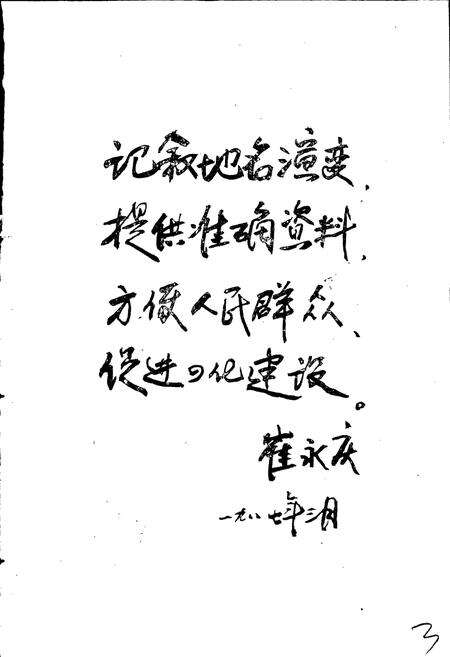 记叙地名演变、
提供准确资料、
方便人民群众、
促进四化建设。
崔永庆
一九八七年三月
3